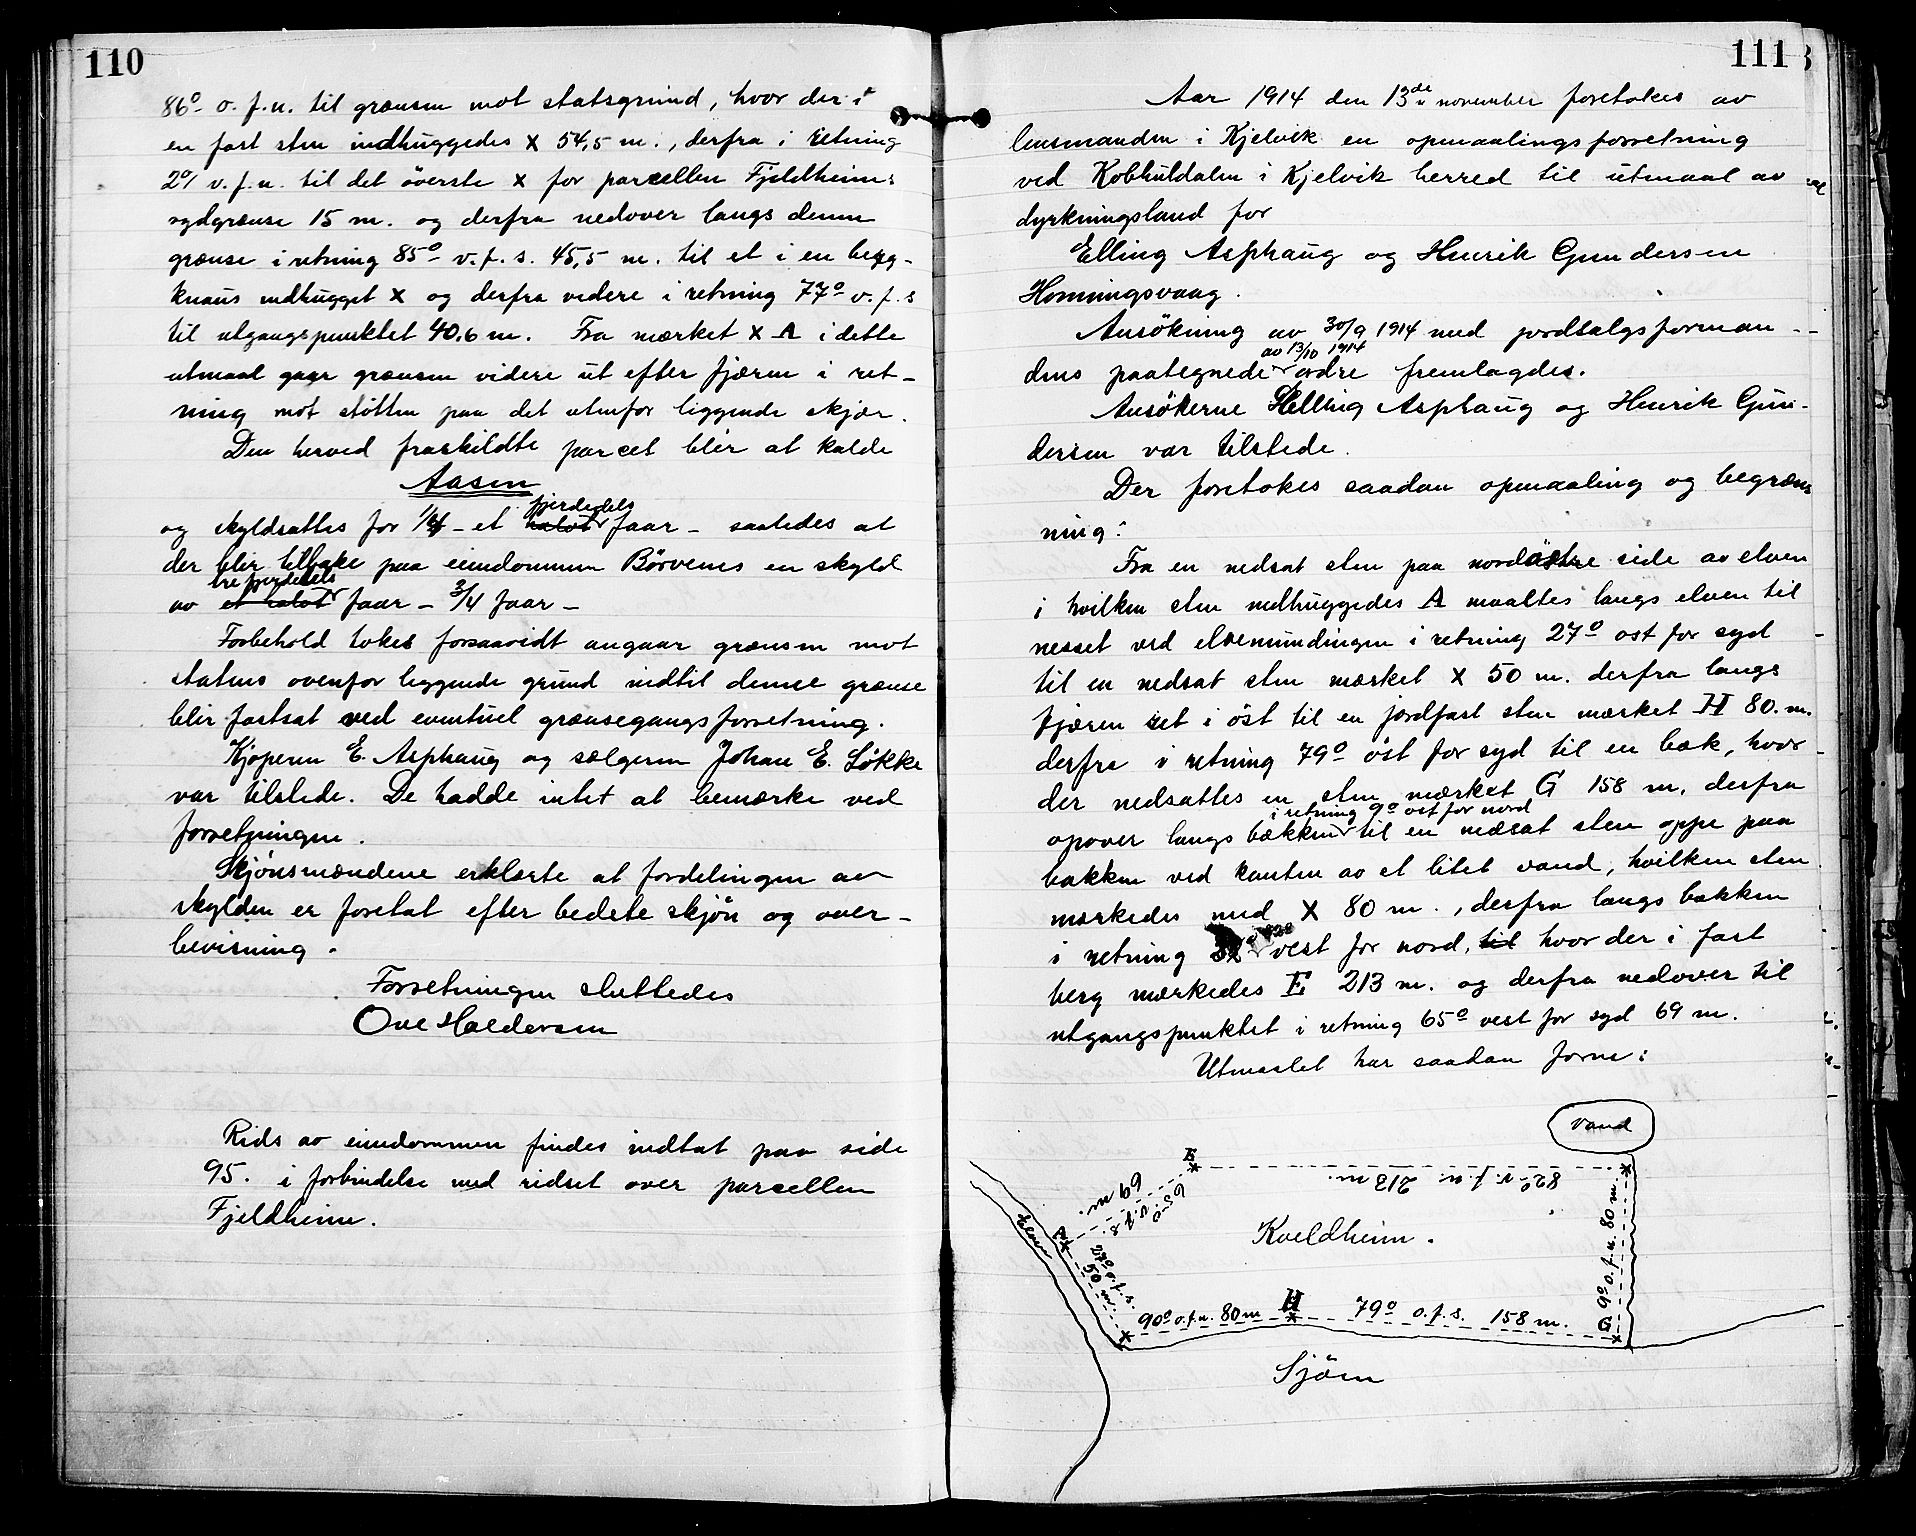 110
86° o. f. n. til grænsen mot statsgrund, hvor der i
en fast sten indhuggedes X 54,5 m., derfra i retning
2° v. f. n. til det överste X for parcellen Fjeldheims
sydgrænse 15 m. og derfra nedover langs denne
grænse i retning 85° v. f. s. 45,5 m. til et i en berg-
knaus indhugget X og derfra videre i retning 77° v. f. s
til utgangspunktet 40,6 m. Fra mærket X A i dette
utmaal gaar grænsen videre ut efter fjæren i ret-
ning mot støtten paa det utenfor liggende skjær.
Den herved fraskildte parcel blir at kalde
Aasen
fjerdedels
og skyldsattes for 1/4 - et halvt faar - saaledes at
der blir tilbake paa eiendommen Börvenes en skyld
tre fjerdedels
av et halvt faar - 3/4 faar -
Forbehold tokes forsaavidt angaar grænsen mot
statens ovenfor liggende grund indtil denne grænse
blir fastsat ved eventuel grænsegangsforretning.
Kjøperen E. Asphaug og sælgeren Johan E. Løkke
var tilstede. De hadde intet at bemærke ved
forretningen.
Skjönsmændene erklærte at fordelingen av
skylden er foretat efter bedste skjön og over-
bevisning.
Forretningen sluttedes
Ove Haldorsen
Rids av eiendommen findes indtat paa side
95. i forbindelse med ridset over parcellen
Fjeldheim.
111
Aar 1914 den 13de november foretokes av
lensmanden i Kjelvik en opmaalingsforretning
ved Kobhuldalen i Kjelvik herred til utmaal av
dyrkningsland for
Elling Asphaug og Henrik Gundersen
Honningsvaag.
Ansökning av 30/9 1914 med jordsalgsforman-
av 13/10 1914
dens paategnede ordre fremlagdes.
Ansökerne Elling Asphaug og Henrik Gun-
dersen var tilstede.
Der foretokes saadan opmaaling og begræns
ning:
Fra en nedsat sten paa nordöstre side av elven
i hvilken sten nedhuggedes A maaltes langs elven til
nesset ved elvemundingen i retning 27° ost for syd
til en nedsat sten mærket X 50 m. derfra langs
fjæren ret i öst til en jordfast sten mærket H 80. m.
derfra i retning 79° öst for syd til en bæk, hvor
der nedsattes en sten mærket G 158 m. derfra
i retning 9° ost for nord
opover langs bækken til en nedsat sten oppe paa
bakken ved kanten av et litet vand, hvilken sten
mærkedes med X 80 m., derfra langs bakken
i retning 82° vest for nord, til hvor der i fast
berg mærkedes E 213 m. og derfra nedover til
utgangspunktet i retning 65° vest for syd 69 m.
Utmaalet har saadan form:
Vand
E
82° v. f. n. 213 m.
69 m.
65° v. f. s.
Elven
A
27° o. f. s.
50 m.
Kveldheim.
9° o. f. n. 80 m.
90° o. f. n. 80 m
H
79° o. f. s. 158 m.
G
Sjöen